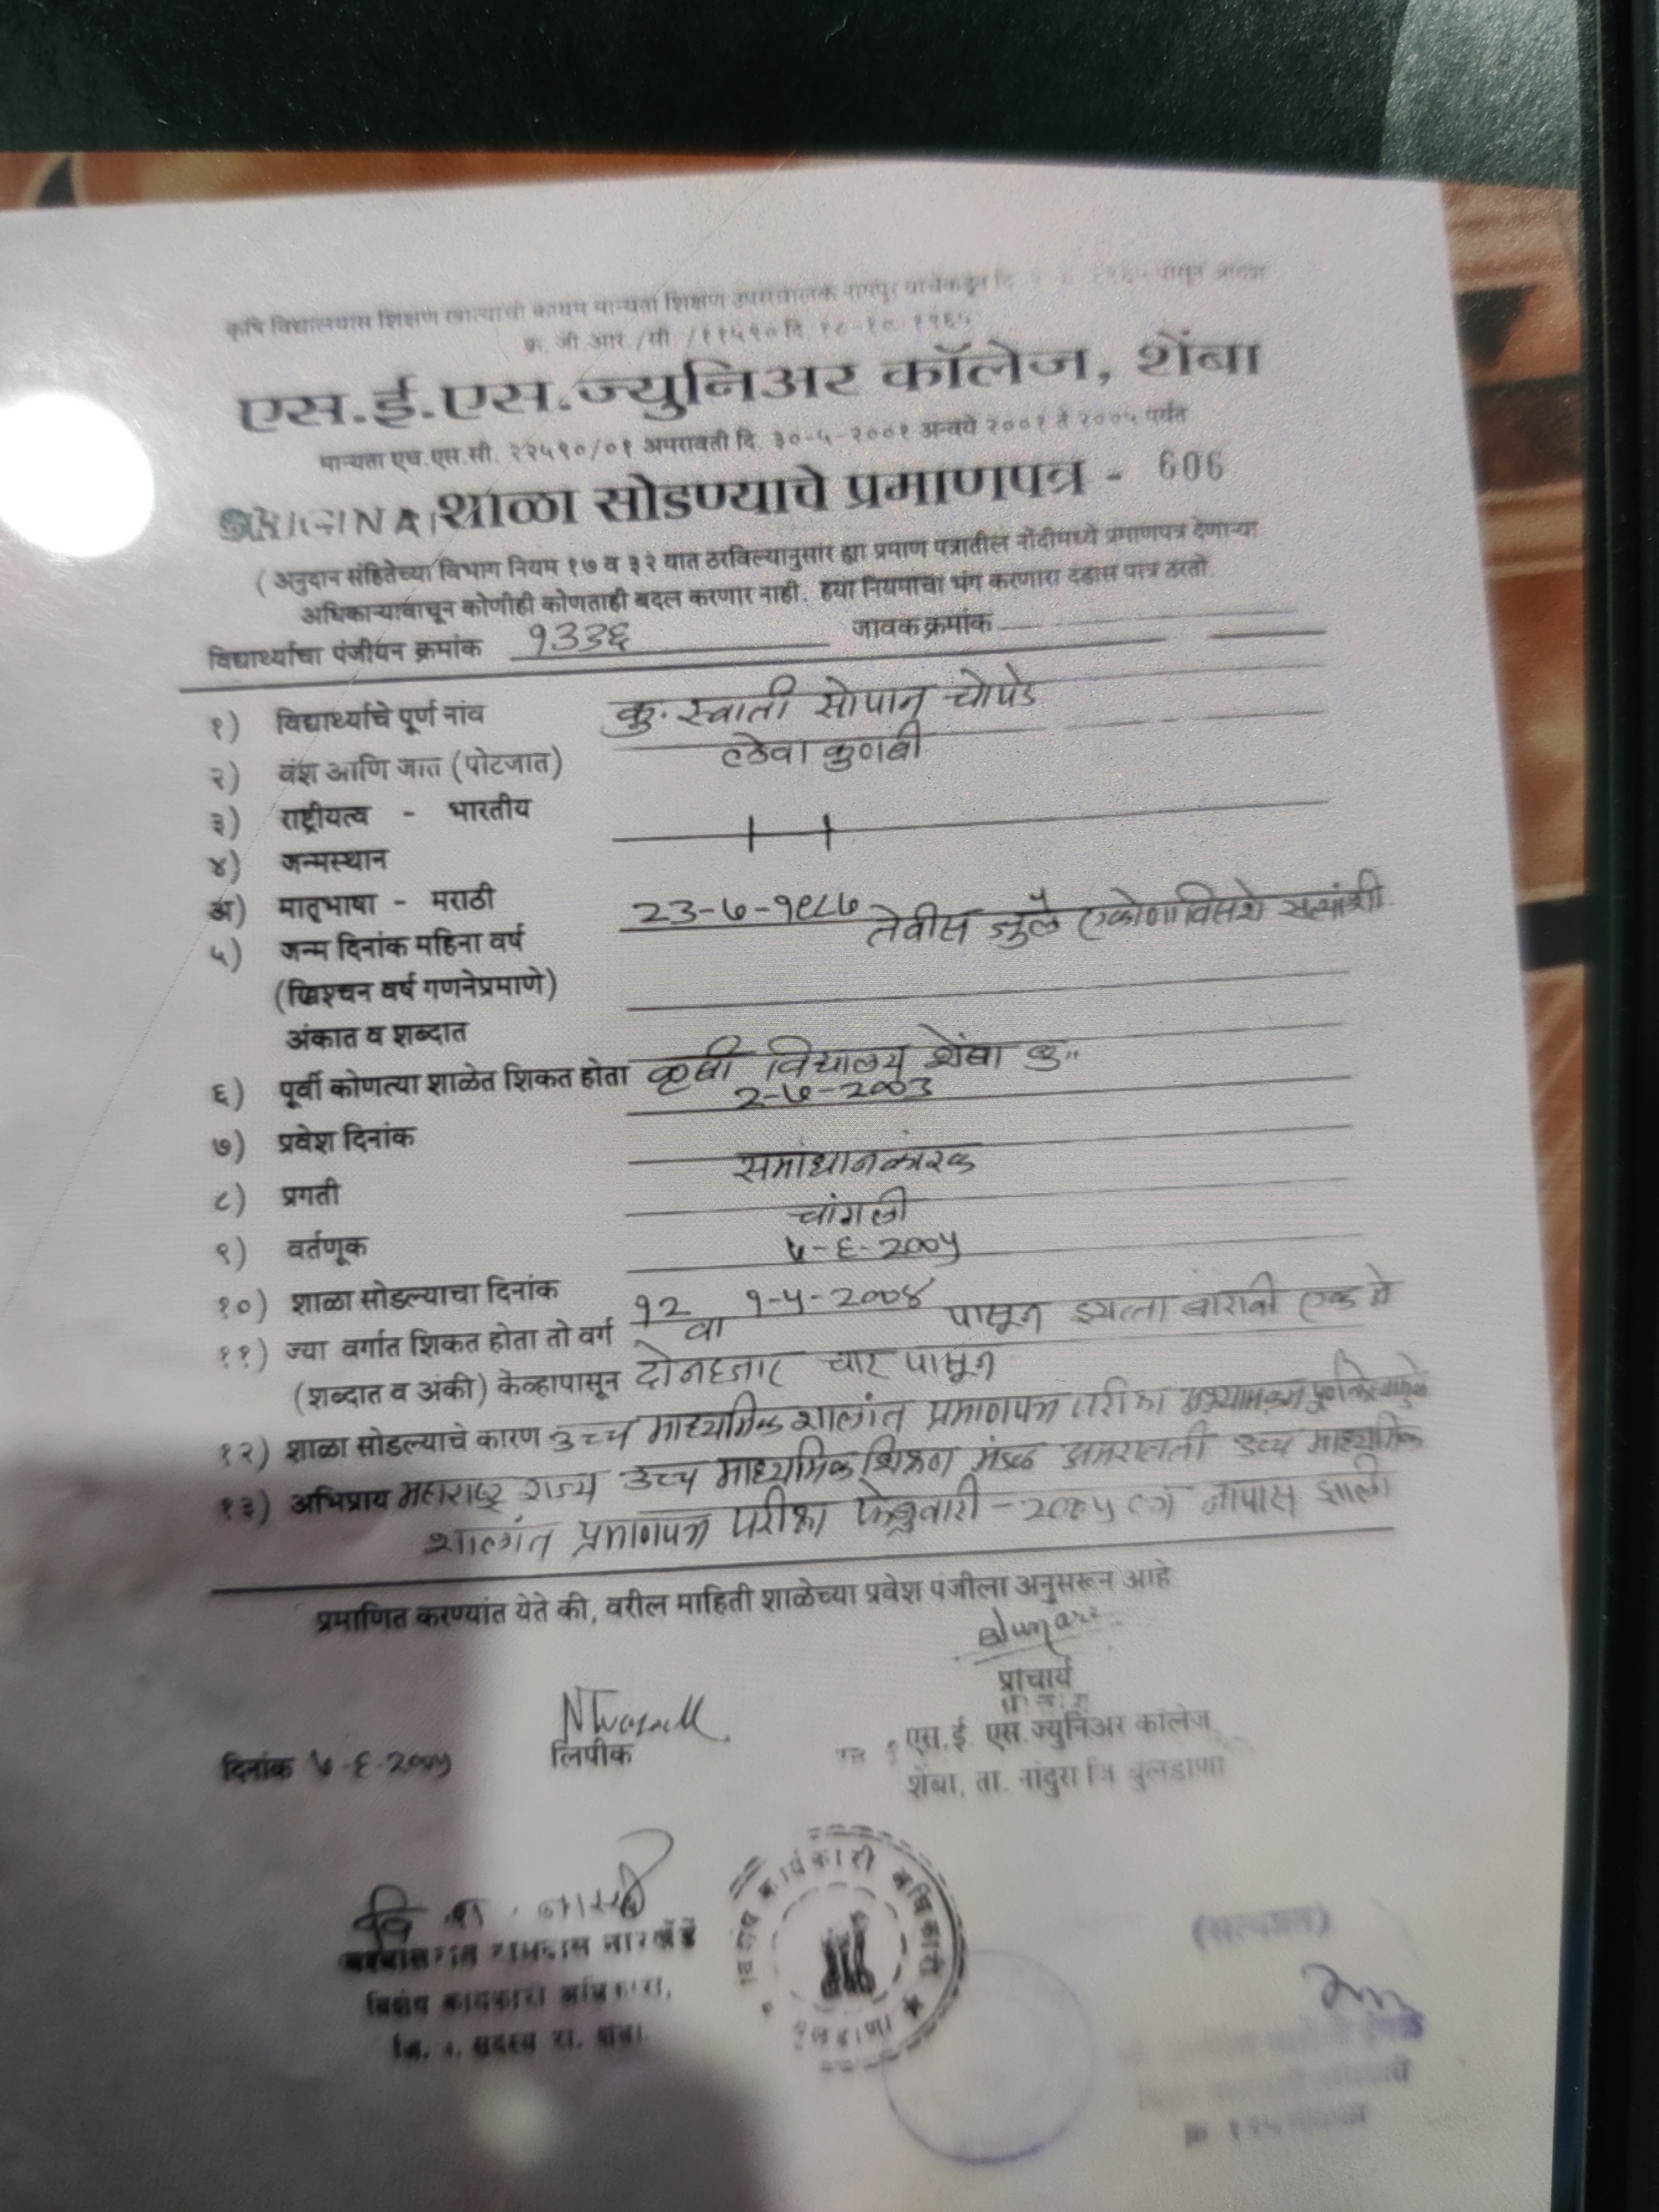 कृषि विद्यालयास शिक्षण खात्याची कायम मान्यता शिक्षण उपसंचालक नागपूर यांचेकडून दि पासून प्राप्त
क्र. जी.आर./सी /११५९० दि १८-१०-१९६५
एस.ई.एस.ज्युनिअर कॉलेज, शेंबा
मान्यता एच.एस.सी. २२५९०/०१ अमरावती दि. ३०-५-२००१ अन्वये २००१ ते २००५ पर्यंत
ORIGINAL शाळा सोडण्याचे प्रमाणपत्र - 606
( अनुदान संहितेच्या विभाग नियम १७ व ३२ यात ठरविल्यानुसार ह्या प्रमाण पत्रातील नोंदीमध्ये प्रमाणपत्र देणाऱ्या
अधिकाऱ्यावाचून कोणीही कोणताही बदल करणार नाही. हया नियमाचा भंग करणारा दंडास पात्र ठरतो.
विद्यार्थ्याचा पंजीयन क्रमांक १३३६ जावक क्रमांक
१) विद्यार्थ्याचे पूर्ण नांव कु. स्वाती सोपान चोपडे
२) वंश आणि जात (पोटजात) लेवा कुणबी
३) राष्ट्रीयत्व - भारतीय
४) जन्मस्थान
अ) मातृभाषा - मराठी
५) जन्म दिनांक महिना वर्ष २३-७-१९८७ तेवीस जुलै एकोणाविसशे सत्यांशी
(ख्रिश्चन वर्ष गणनेप्रमाणे)
अंकात व शब्दात
६) पूर्वी कोणत्या शाळेत शिकत होता कृषी विद्यालय शेंबा बु"
७) प्रवेश दिनांक २-७-२००३
८) प्रगती समाधानकारक
९) वर्तणूक चांगली
१०) शाळा सोडल्याचा दिनांक ७-६-२००५
११) ज्या वर्गात शिकत होता तो वर्ग १२ वा १-५-२००४ पासून इयत्ता बारावी एक मे
(शब्दात व अंकी) केव्हापासून दोनहजार चार पासून
१२) शाळा सोडल्याचे कारण उच्च माध्यमिक शालांत प्रमाणपत्र परीक्षा
१३) अभिप्राय महाराष्ट्र राज्य उच्च माध्यमिक शिक्षण मंडळ अमरावती उच्च माध्यमिक
शालांत प्रमाणपत्र परीक्षा फेब्रुवारी - २००५ नापास झाली
प्रमाणित करण्यांत येते की, वरील माहिती शाळेच्या प्रवेश पंजीला अनुसरून आहे
प्राचार्य
दिनांक ७-६-२००५ लिपीक एस.ई. एस. ज्युनिअर कॉलेज,
शेंबा, ता. नांदुरा जि बुलडाणा
विशेष कार्यकारी अधिकारी
बुलडाणा
रामदास नारखेडे
विशेष कार्यकारी अधिकारी,
(सत्यप्रत)